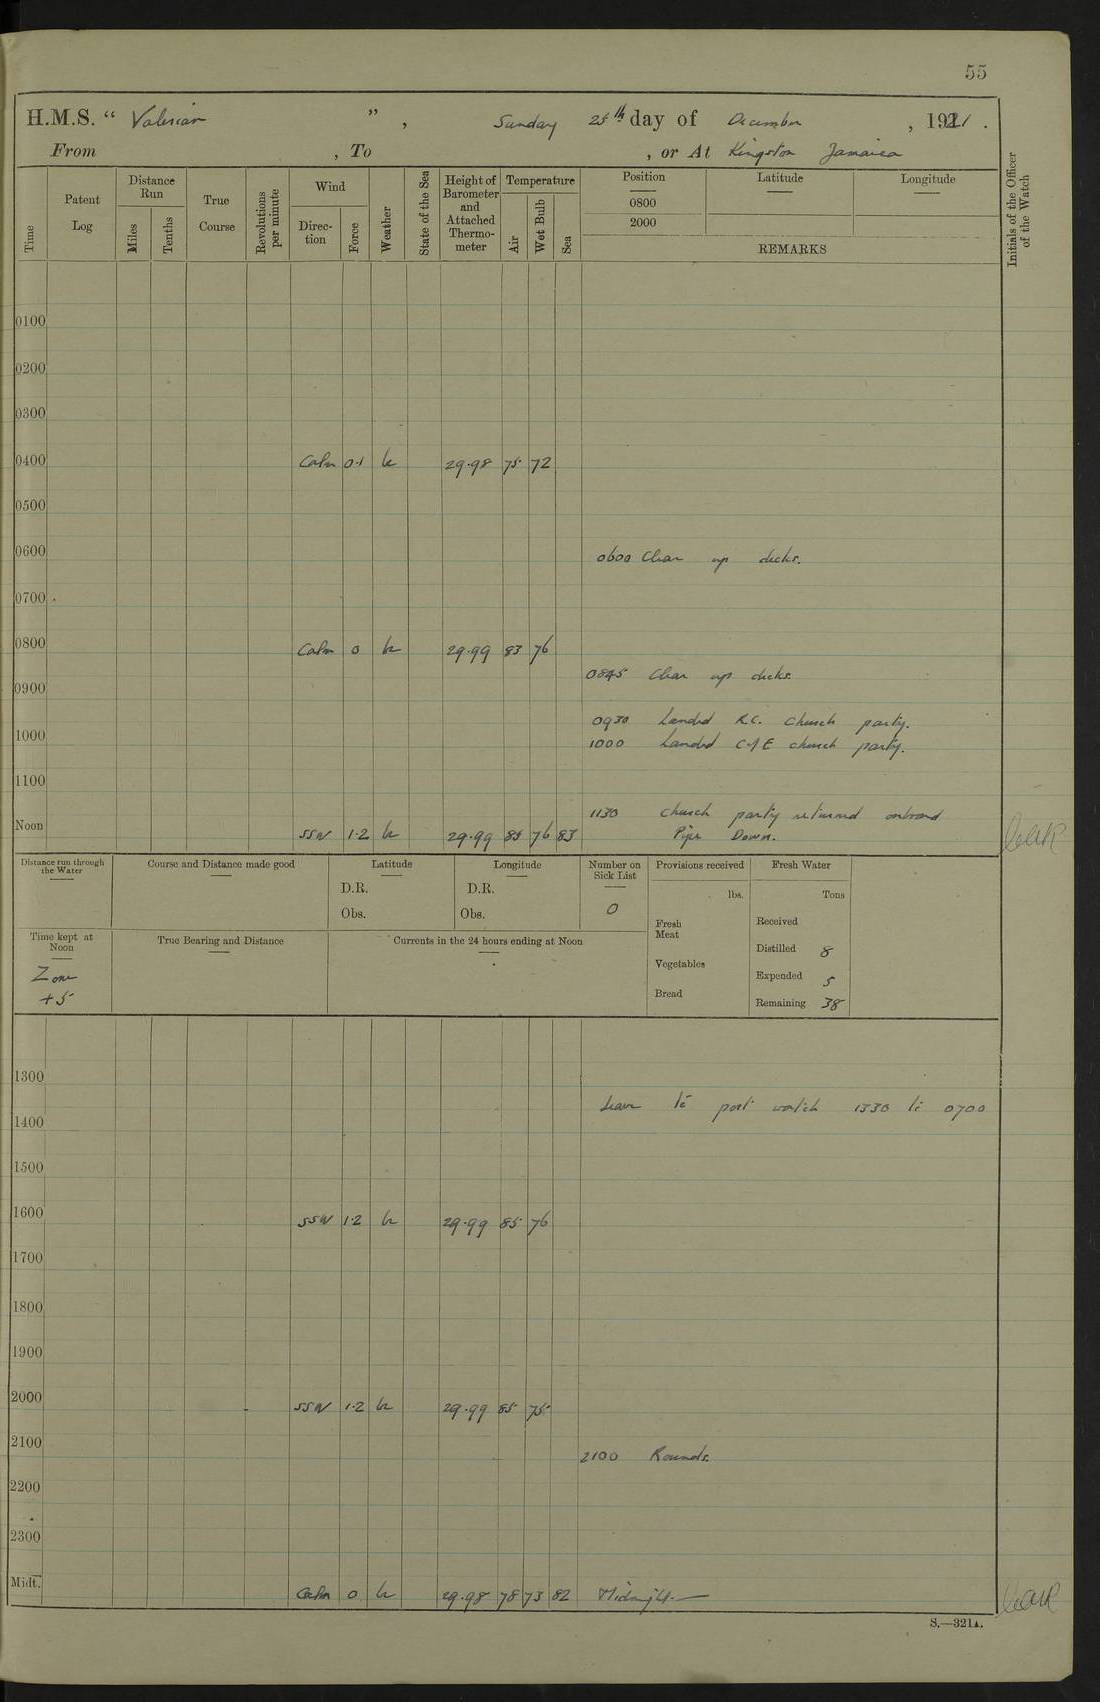 55
H.M.S. “ Valerian ” , Sunday 25th day of December , 1921 .
From , To , or At Kingston Jamaica
Time
Patent Log
Distance Run
Miles
Tenths
True Course
Revolutions per minute
Wind
Direc-tion
Force
Weather
State of the Sea
Height of Barometer and Attached Thermo-meter
Temperature
Air
Wet Bulb
Sea
Position
0800
2000
Latitude
Longitude
REMARKS
Initials of the Officer of the Watch
0100
0200
0300
0400 Calm 0·1 b 29·98 75 72
0500
0600 0600 Clear up decks.
0700
0800 Calm 0 b 29·99 83 76
0845 Clear up decks.
0900
0930 Landed R.C. Church party.
1000 1000 Landed C of E church party.
1100
1130 Church party returned onboard
Noon SSW 1·2 b 29·99 85 76 83 Pipe Down.
Distance run through the Water
Course and Distance made good
Latitude
D.R.
Obs.
Longitude
D.R.
Obs.
Number on Sick List
0
Provisions received
lbs.
Fresh Meat
Vegetables
Bread
Fresh Water
Tons
Received
Distilled 8
Expended 5
Remaining 38
Time kept at Noon
Zone
+5
True Bearing and Distance
Currents in the 24 hours ending at Noon
1300
Leave to port watch 1330 to 0700
1400
1500
1600 SSW 1·2 b 29·99 85 76
1700
1800
1900
2000 SSW 1·2 b 29·99 85 75
2100 2100 Rounds.
2200
2300
Midt. Calm 0 b 29·98 78 73 82 Midnight.
S.—321A.